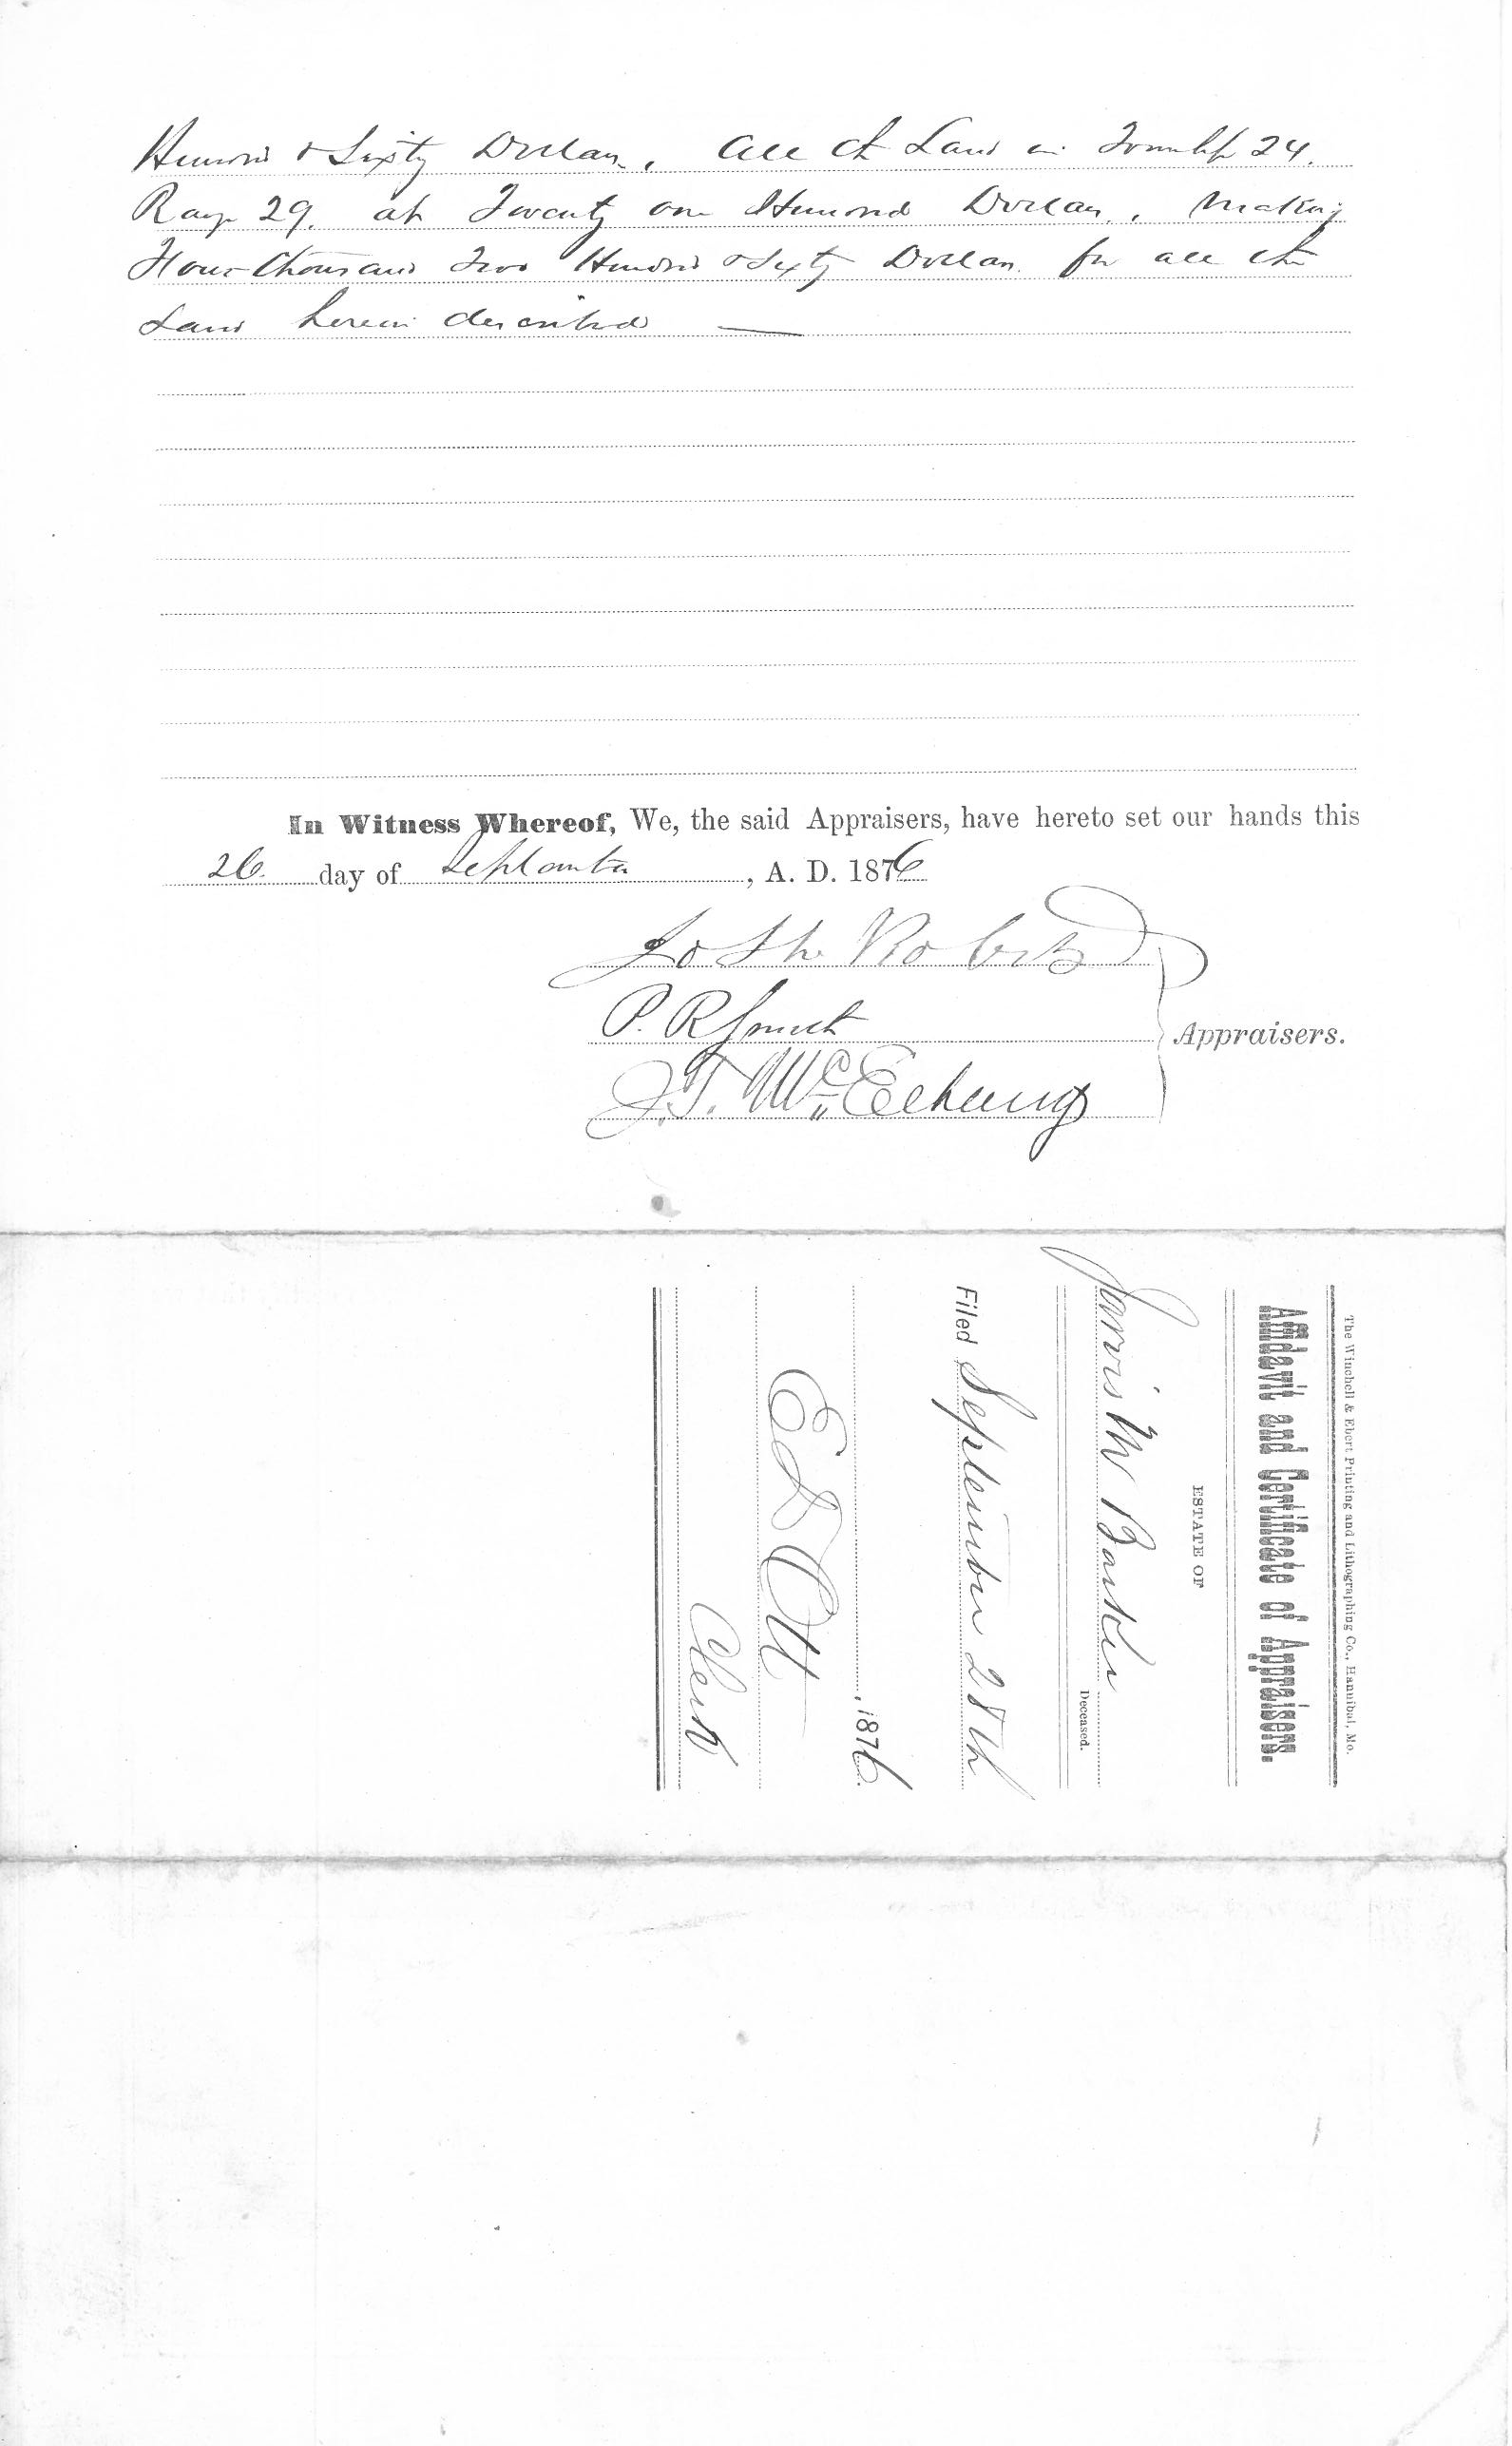 Hundred & Sixty Dollars, all the Land in Township 24.
Range 29. at Twenty one Hundred Dollars, making
Four thousand Two Hundred & Sixty Dollars for all the
Land herein described
In Witness Whereof, We, the said Appraisers, have hereto set our hands this
26 day of September, A. D. 1876
Roberts
P. R. Smith
J. T. Mc
Appraisers.
The Winchell & Ebert Printing and Lithographing Co., Hannibal, Mo.
Affidavit and Certificate of Appraisers.
ESTATE OF
Jarvis M Barker
Deceased.
Filed September 28th
, 1876.
E D Ott
Clerk